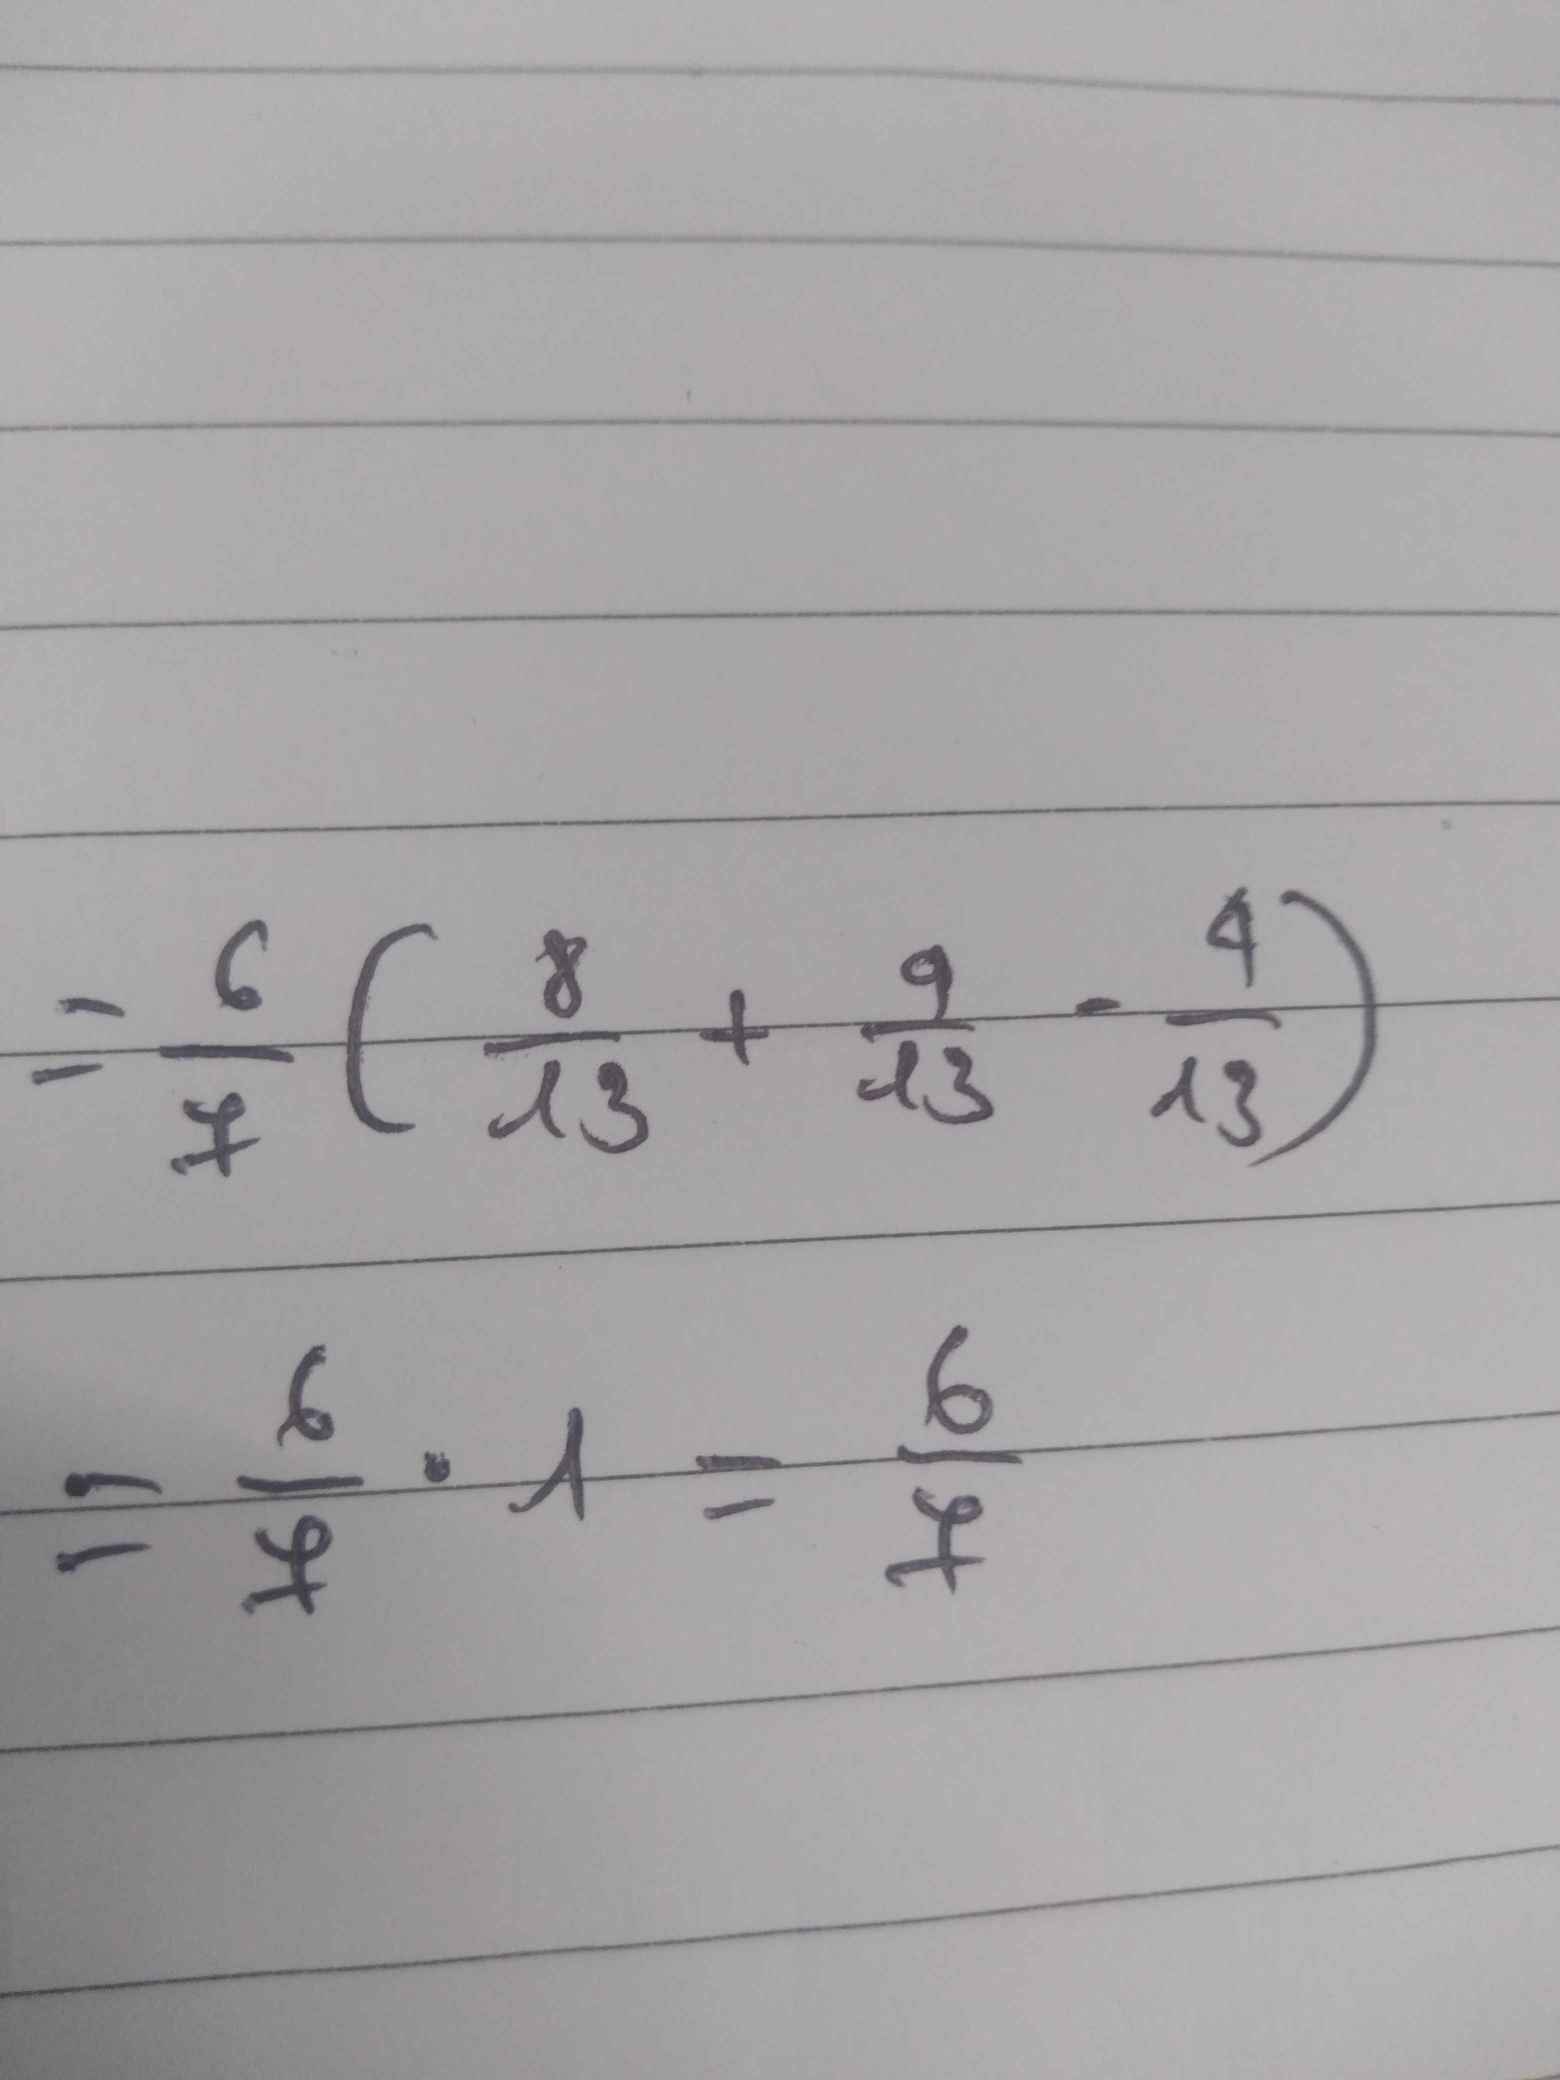 = 6/7 ( 8/13 + 9/13 - 4/13 )
= 6/7 . 1 = 6/7